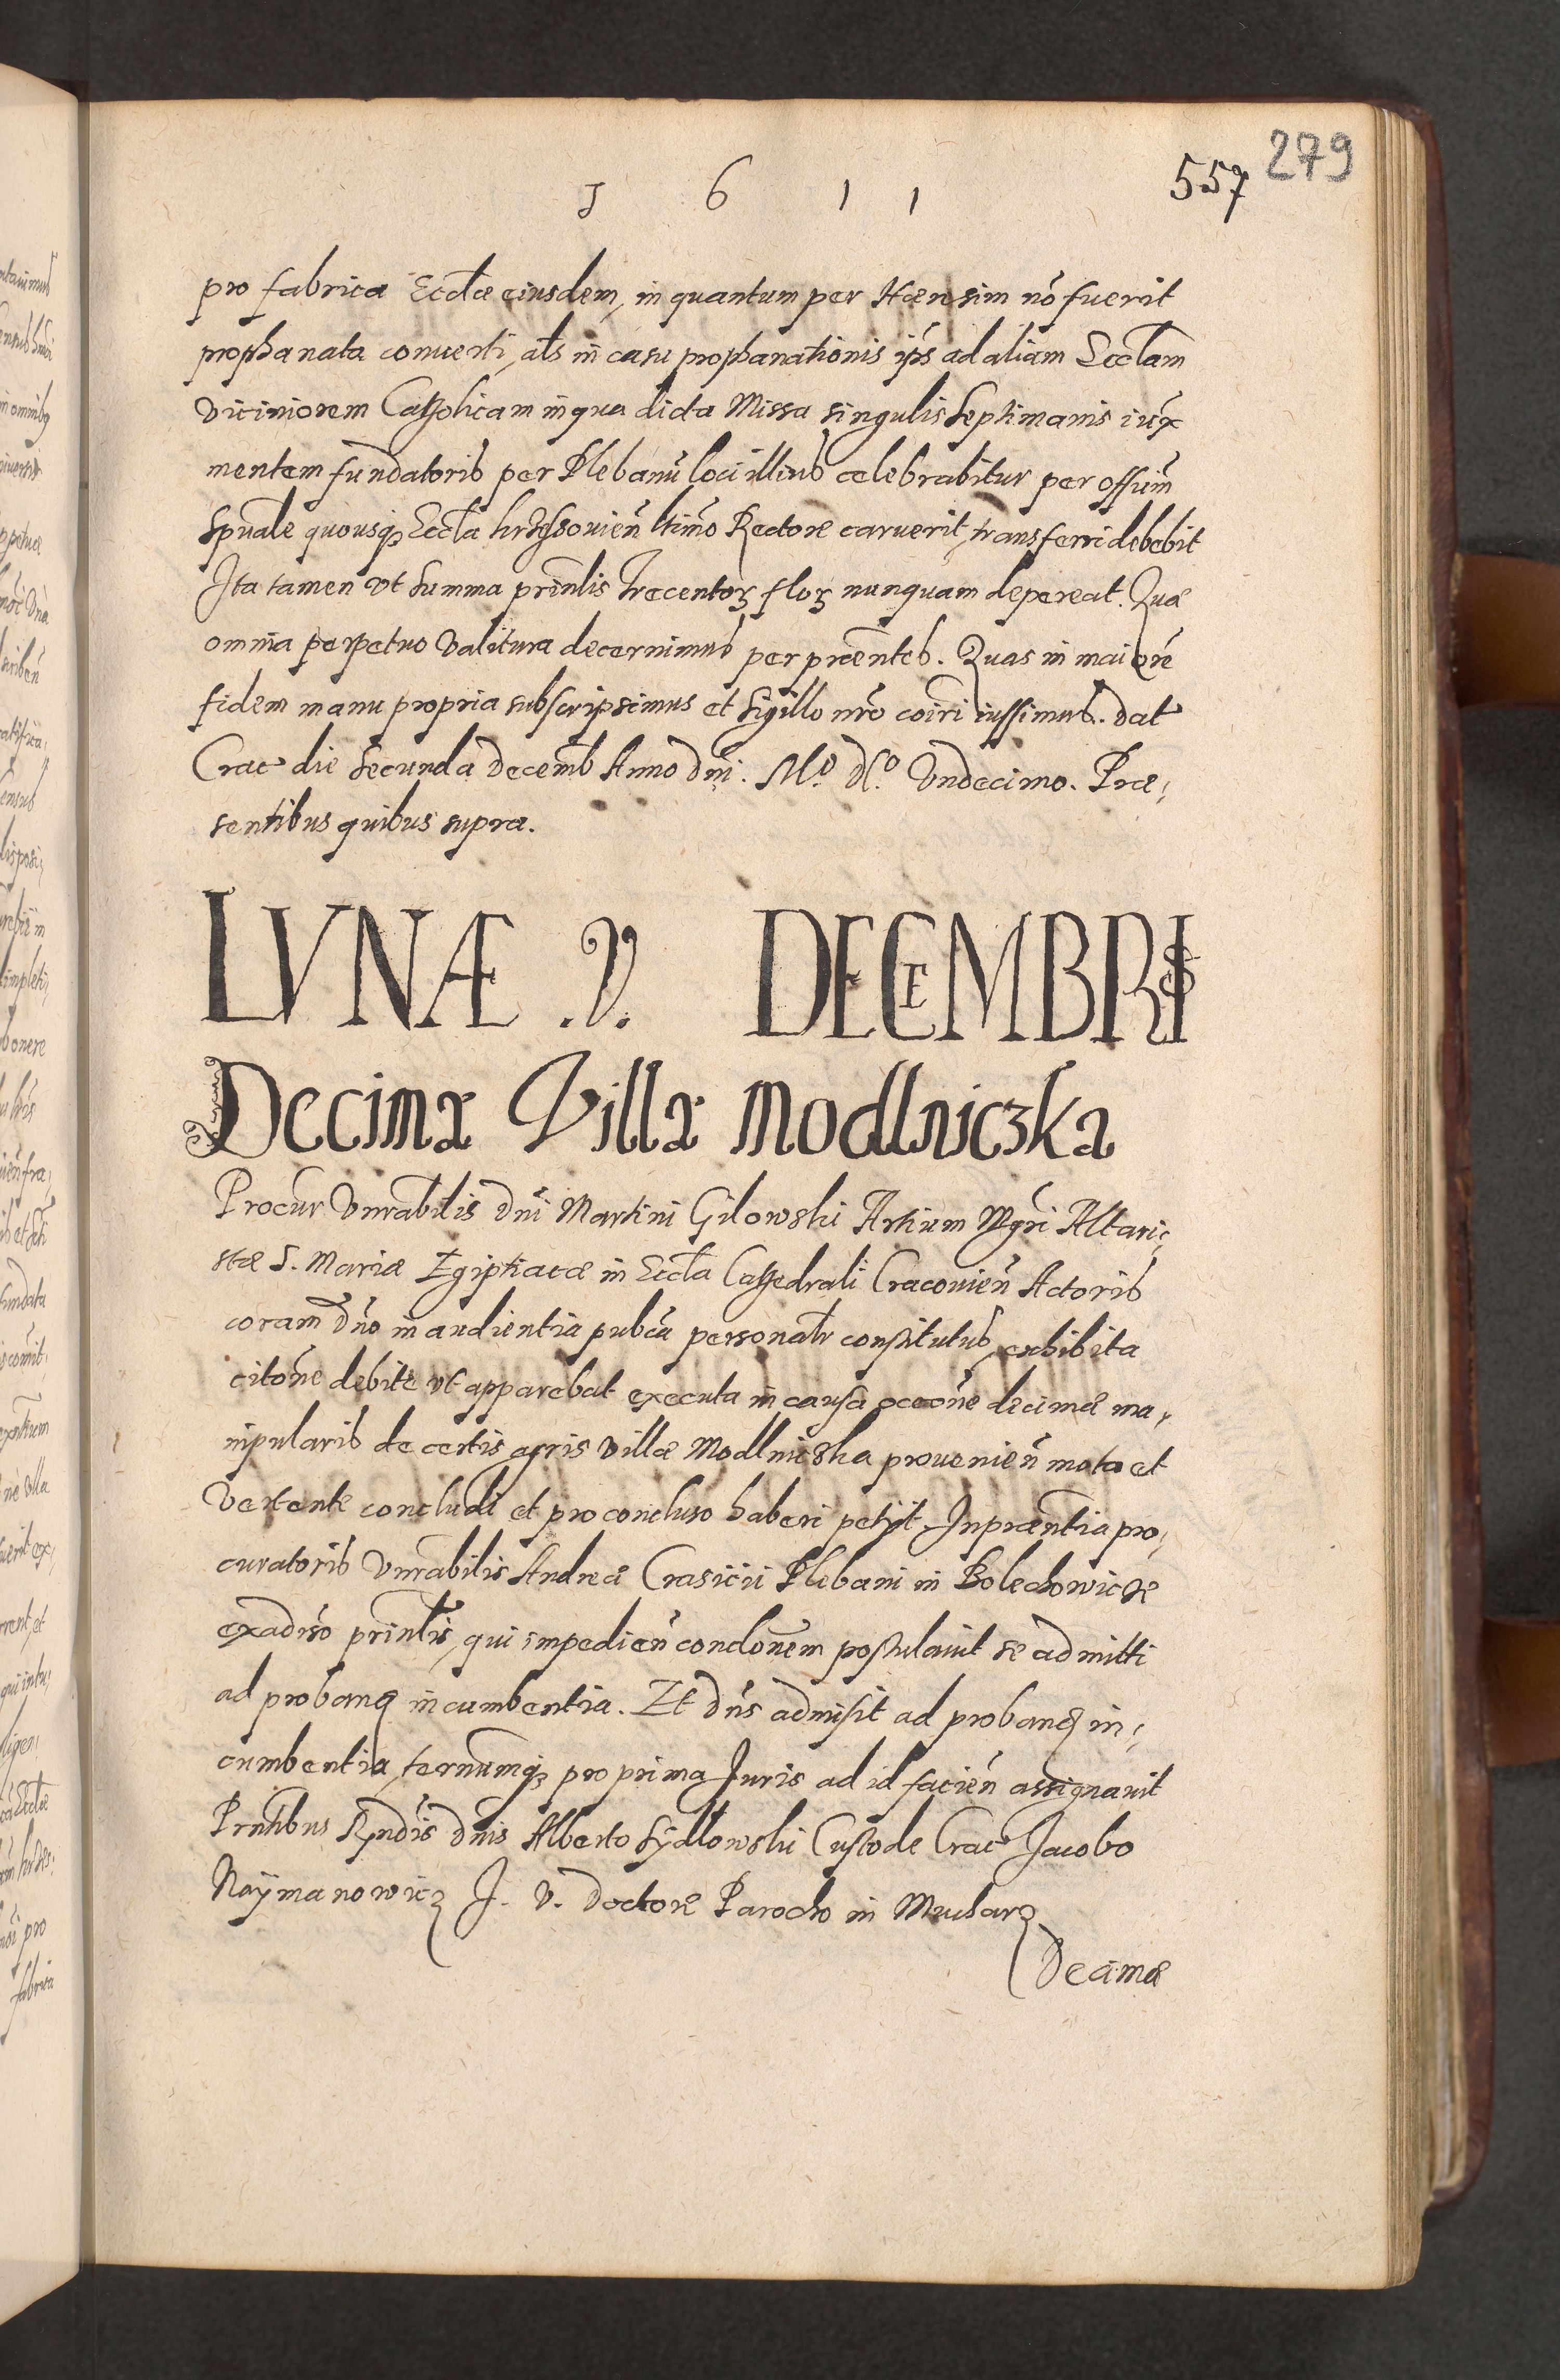 1 6 1 1
557 279
pro fabrica Eccłæ eiusdem, in quantum per Hæresim nõ fuerit
prophanata conuerti, als in casu prophanationis ips ad aliam Eccłam
viciniorem Catholicam in qua dicta Missa singulis septimanis iux
mentem fundatoris per Plebanũ loci illius celebrabitur per offium̃
spuale quousq3 Eccła ltimo Rectore caruerit, transferri debebit
Ita tamen vt summa prinłis trecentoꝝ floꝝ nunquam depereat. Quæ
omnia perpetuo valitura decernimus per præntes. Quas in maiore
fidem manu propria subscripsimus et sigillo nro coiri iussimus. dat
Crac die secunda decemb Anno dni. Mº. dcº. vndecimo. Præ-
sentibus quibus supra.
LVNÆ .V. DECEMBRIS
Decimæ Villæ Modlniczka
Procur vnrabilis dni Martini Gilowski Artium Mgri Altari-
stæ S. Mariæ Egiptiacæ in Eccła Cathedrali Cracouien̄ Actoris
coram dno in audientia pubca personalr constitutus, exhibita
citone debite vt apparebat executa in causa occone decimæ ma-
nipularis de certis agris villæ Modlniczka prouenien̄ mota et
vertente concludi et pro concluso haberi petijt. In præntia pro-
curatoris vnrabilis Andreæ Crasicii Plebani in Bolechowicze
ex aduso prinłis, qui impedien̄ conclonem postulauit se admitti
ad proband incumbentia. Et dns admisit ad proband in-
cumbentia, ternumq3 pro prima Juris ad id facien̄ assignauit
Prntibus Rndis dnis Alberto Sydłowski Custode Crac Jacobo
Naymanowicz J. V. Doctore Parocho in Mucharz
Decimæ